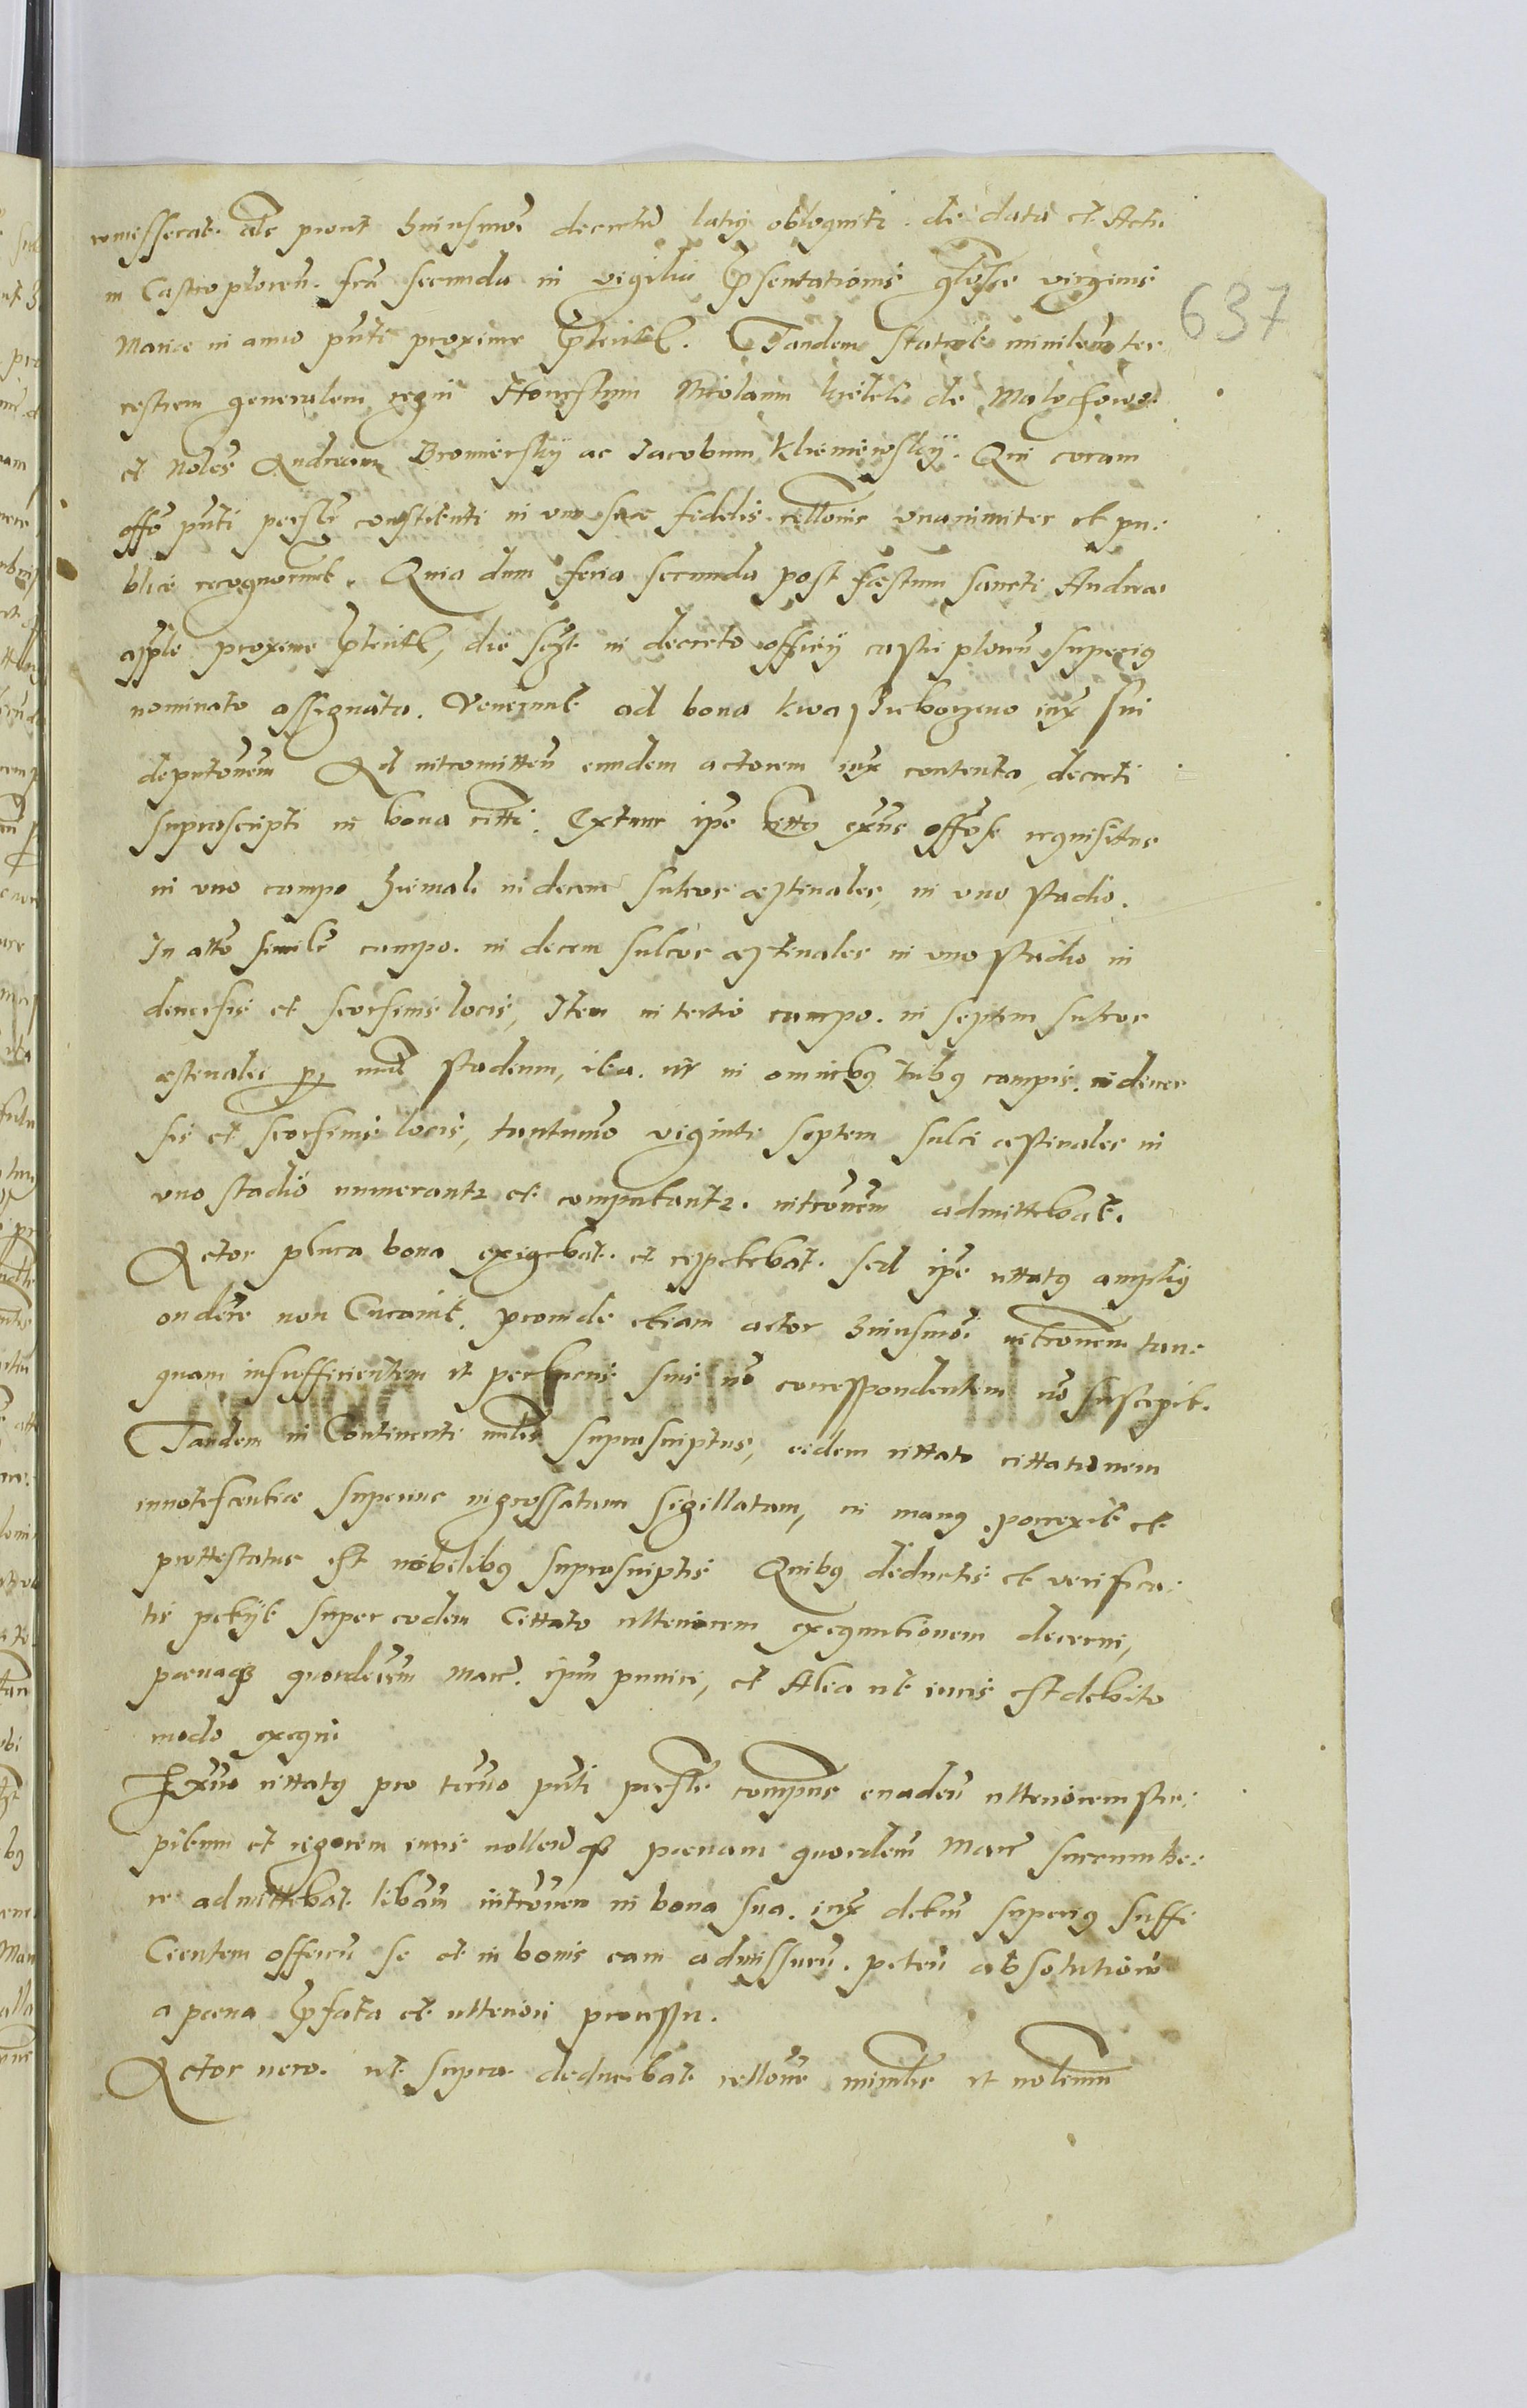 637
misserat. als prout huiusmoi decretu latiq obloquiti. de data et Actu
in Castro plocen. fria secunda in vigilia Psentationis glose virginis
Marie in anno pnti proxime Pteriti. Tandem statuit minilem ter
restrem generalem regni Honestum Nicolaum de Malochowo.
et Noles Andream Bromiersky ac Jacobum Kliemiewsky. Qui coram
offo pnti persler constituti in vim sue fidelis rellonis vnanimiter et pu:
blice recognoverunt. Quia dum feria secunda post fæstum sancti Andreæ
aple proxime Pterit, die sczt in decreto officij castri plocen superiq
nominato assignata. Venerunt ad bona kwa iux sui
deputonem Ad intromitten eundem actorem iux contenta decreti
suprascripti in bona citti. Extunc ipe cittq exns offose requisitus
in vno campo hiemali in decem sulcos æstivales, in vno stadio.
In alto simili campo. in decem sulcos æstivales in vno stadio in
diversis et seorsinis locis, Item in tertio campo. in septem sulcos
æstivales p unu stadium, ita. ut in omnibq tribq campis. in diver
sis et seorsinis locis, tantumo viginti septem sulci æstivales in
vno stadio numerantr et computantr. intronem admittebat.
Actor plura bona exigebat. et repetebat. sed ipe cittatq ampliq
ondere non Curavit. proinde etiam actor huiusmoi intronem tan:
quam insufficientem et pecuniis suis no correspondentem no suscepit.
Tandem in Continenti suprascriptus, eidem cittato cittationem
innotescentiæ superinde ingrossatam sigillatam, in manq porrexit et
prottestatus est nobilibq suprascriptis Quibq deductis et verifica:
tis petijt super eodem Cittato ulteriorem exequutionem decerni,
pœnaq quordecem Marc. ipm puniri, et Alia ut iuris est debito
modo exequi
Exadverso cittatq pro termo pnti persler compns evaden ulteriorem stre:
pitum et rigorem iuris nollenq pœnam quordecem Marc succumbe:
re admittebat libam intronem in bona sua. iux debitum superiq suffi
Cientem offeren se et in bonis eam admissurum. peten absolutiom
a pœna Pfata et ulteriori processu.
Actor vero. ut supra deducebat rellone minilis et nobilium